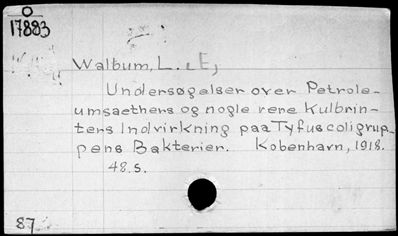 O
17883
Walbum, L. E,
Undersøgelser over Petrole-
umsaethers og nogle rene Kulbrin-
ters Indvirkning paa Tyfuscoligrup-
pens Bakterier. Kobenhavn, 1918.
48.s.
87